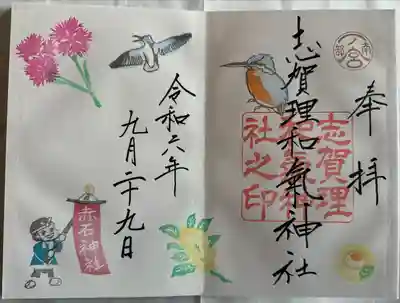 南部
一ノ宮
奉拝
志賀理和氣神社
志賀理
和氣神
社之印
令和六年
九月二十九日
赤石神社